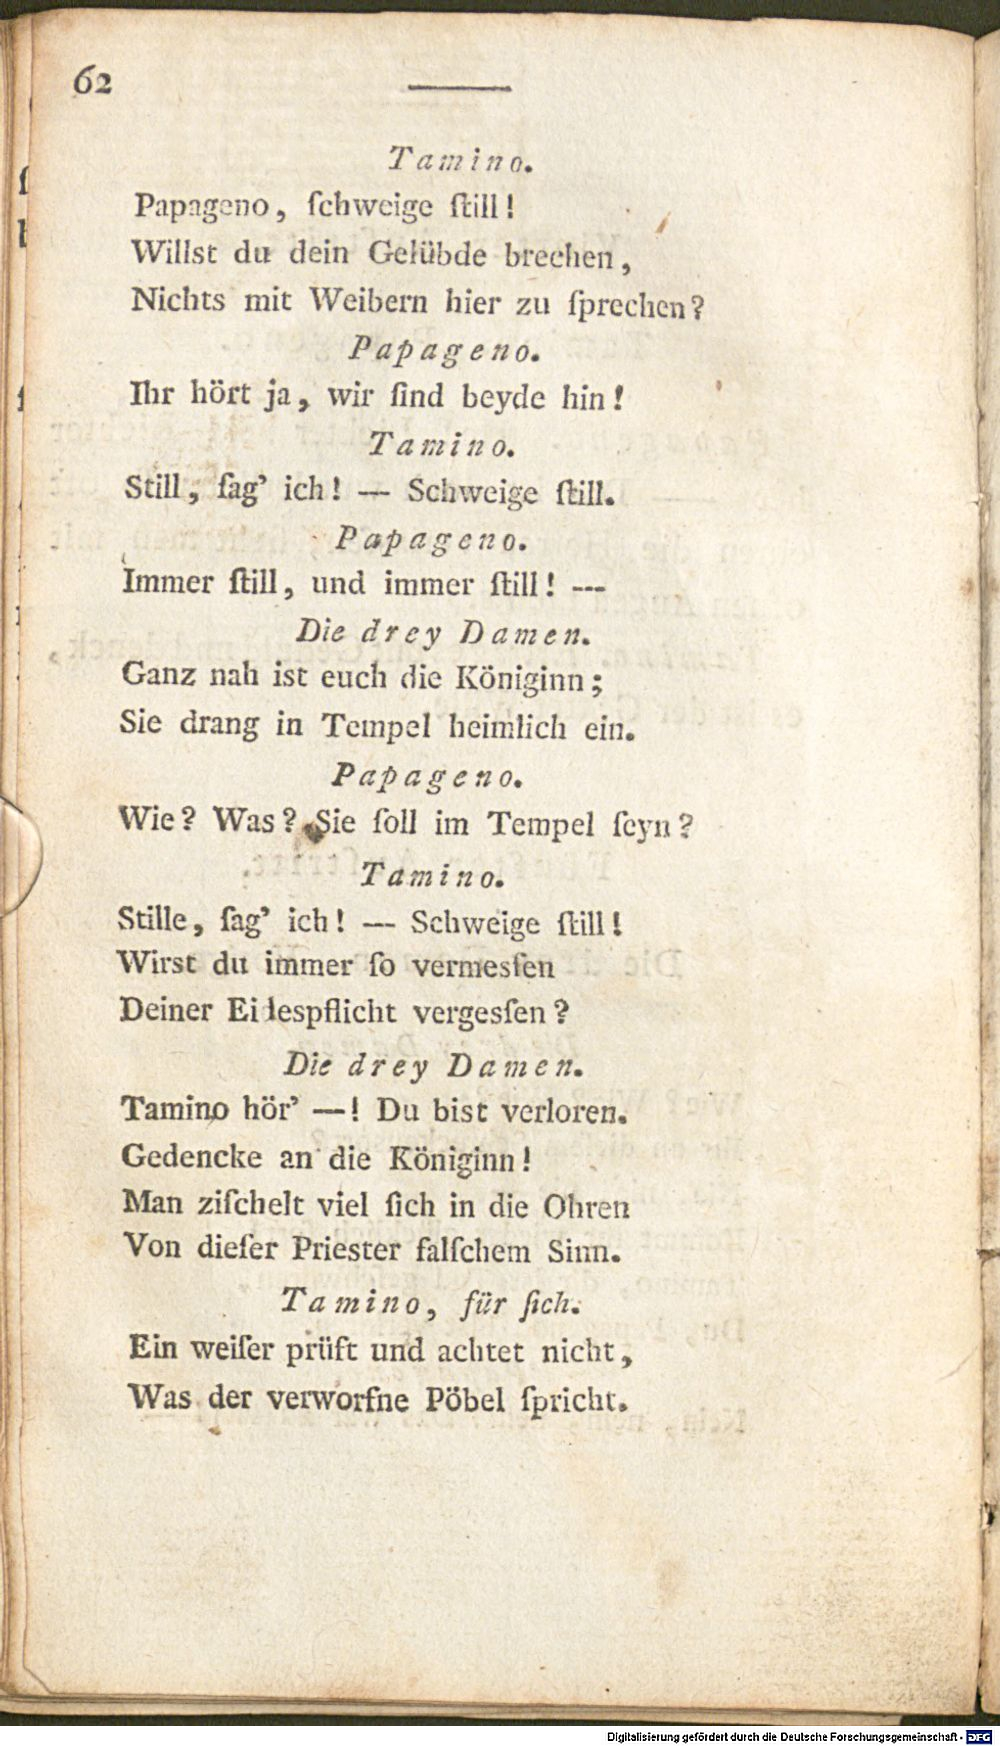 62
Tamino.
Papageno, ſchweige ſtill!
Willst du dein Gelübde brechen,
Nichts mit Weibern hier zu ſprechen?
Papageno.
Ihr hört ja, wir ſind beyde hin!
Tamino.
Still, ſag’ ich! — Schweige ſtill.
Papageno.
Immer ſtill, und immer ſtill! ---
Die drey Damen.
Ganz nah ist euch die Königinn;
Sie drang in Tempel heimlich ein.
Papageno.
Wie? Was? Sie ſoll im Tempel ſeyn?
Tamino.
Stille, ſag’ ich! — Schweige ſtill!
Wirst du immer ſo vermesſen
Deiner Eidespflicht vergesſen?
Die drey Damen.
Tamino hör’ —! Du bist verloren.
Gedencke an die Königinn!
Man ziſchelt viel ſich in die Ohren
Von dieſer Priester falſchem Sinn.
Tamino, für ſich.
Ein weiſer prüft und achtet nicht,
Was der verworfne Pöbel ſpricht.
Digitalisierung gefördert durch die Deutsche Forschungsgemeinschaft - DFG